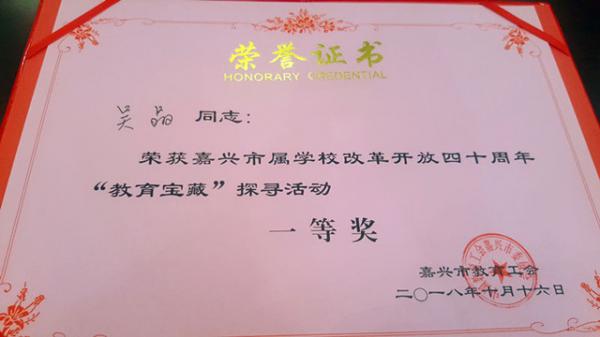 荣誉证书
HONORARY CREDENTIAL
吴晶 同志：
荣获嘉兴市属学校改革开放四十周年
“教育宝藏”探寻活动
一等奖
嘉兴市教育工会
二〇一八年十月十六日